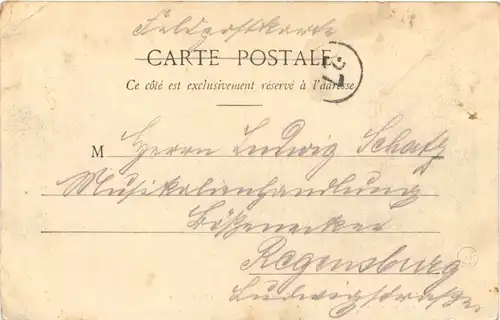 Feldpostkarte
CARTE POSTALE
Ce côté est exclusivement réservé à l'adresse
M Herrn Ludwig Schatz
Musikalienhandlung
Bößenecker
Regensburg
Ludwigstraße.